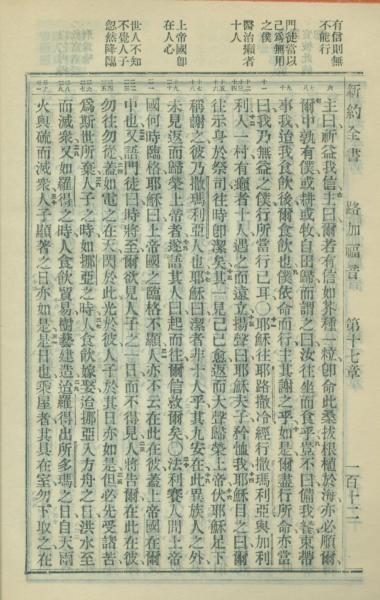 新約全書　路加福音　第十七章　一百十二
有信則無
不能行
門徒當以
己爲無用
之僕
醫治癩者
十人
上帝國卽
在人心
世人不知
不覺人子
忽然降臨
主曰祈益我信主曰爾若有信如芥種一粒卽命此桑拔根植於海亦必順爾
爾中孰有僕或耕或牧自田歸而謂之曰汝往坐而食乎豈不曰備我餐束帶
事我迨我食飲後爾食飲也僕依命而行主其謝之乎如是爾盡行所命亦當
曰我乃無益之僕行所當行已耳○耶穌往耶路撒冷經行撒瑪利亞與加利
利入一村有癩者十人遇之而遠立揚聲曰耶穌夫子矜恤我耶穌目之曰爾
往示身於祭司往時卽潔矣其一見己已愈返而大聲歸榮上帝伏耶穌足下
稱謝之彼乃撒瑪利亞人也耶穌曰潔者非十人乎其九安在此異族人之外
未見返而歸榮上帝者遂語其人曰起而往爾信救爾矣○法利賽人問上帝
國何時臨格耶穌曰上帝國之臨格不顯人亦不云在此在彼蓋上帝國在爾
中也又語門徒曰時將至爾欲見人子之一日而不得見人將告爾在此在彼
勿往勿從蓋如電之在天閃於此光於彼人子於其日亦如是但必先受諸苦
爲斯世所棄人子之時如挪亞之時人食飲嫁娶迨挪亞入方舟之日洪水至
而滅衆又如羅得之時人食飲貿易樹藝建造迨羅得出所多瑪之日自天雨
火與硫而滅衆人子顯著之日亦如是是日也乘屋者其具在室勿下取之在